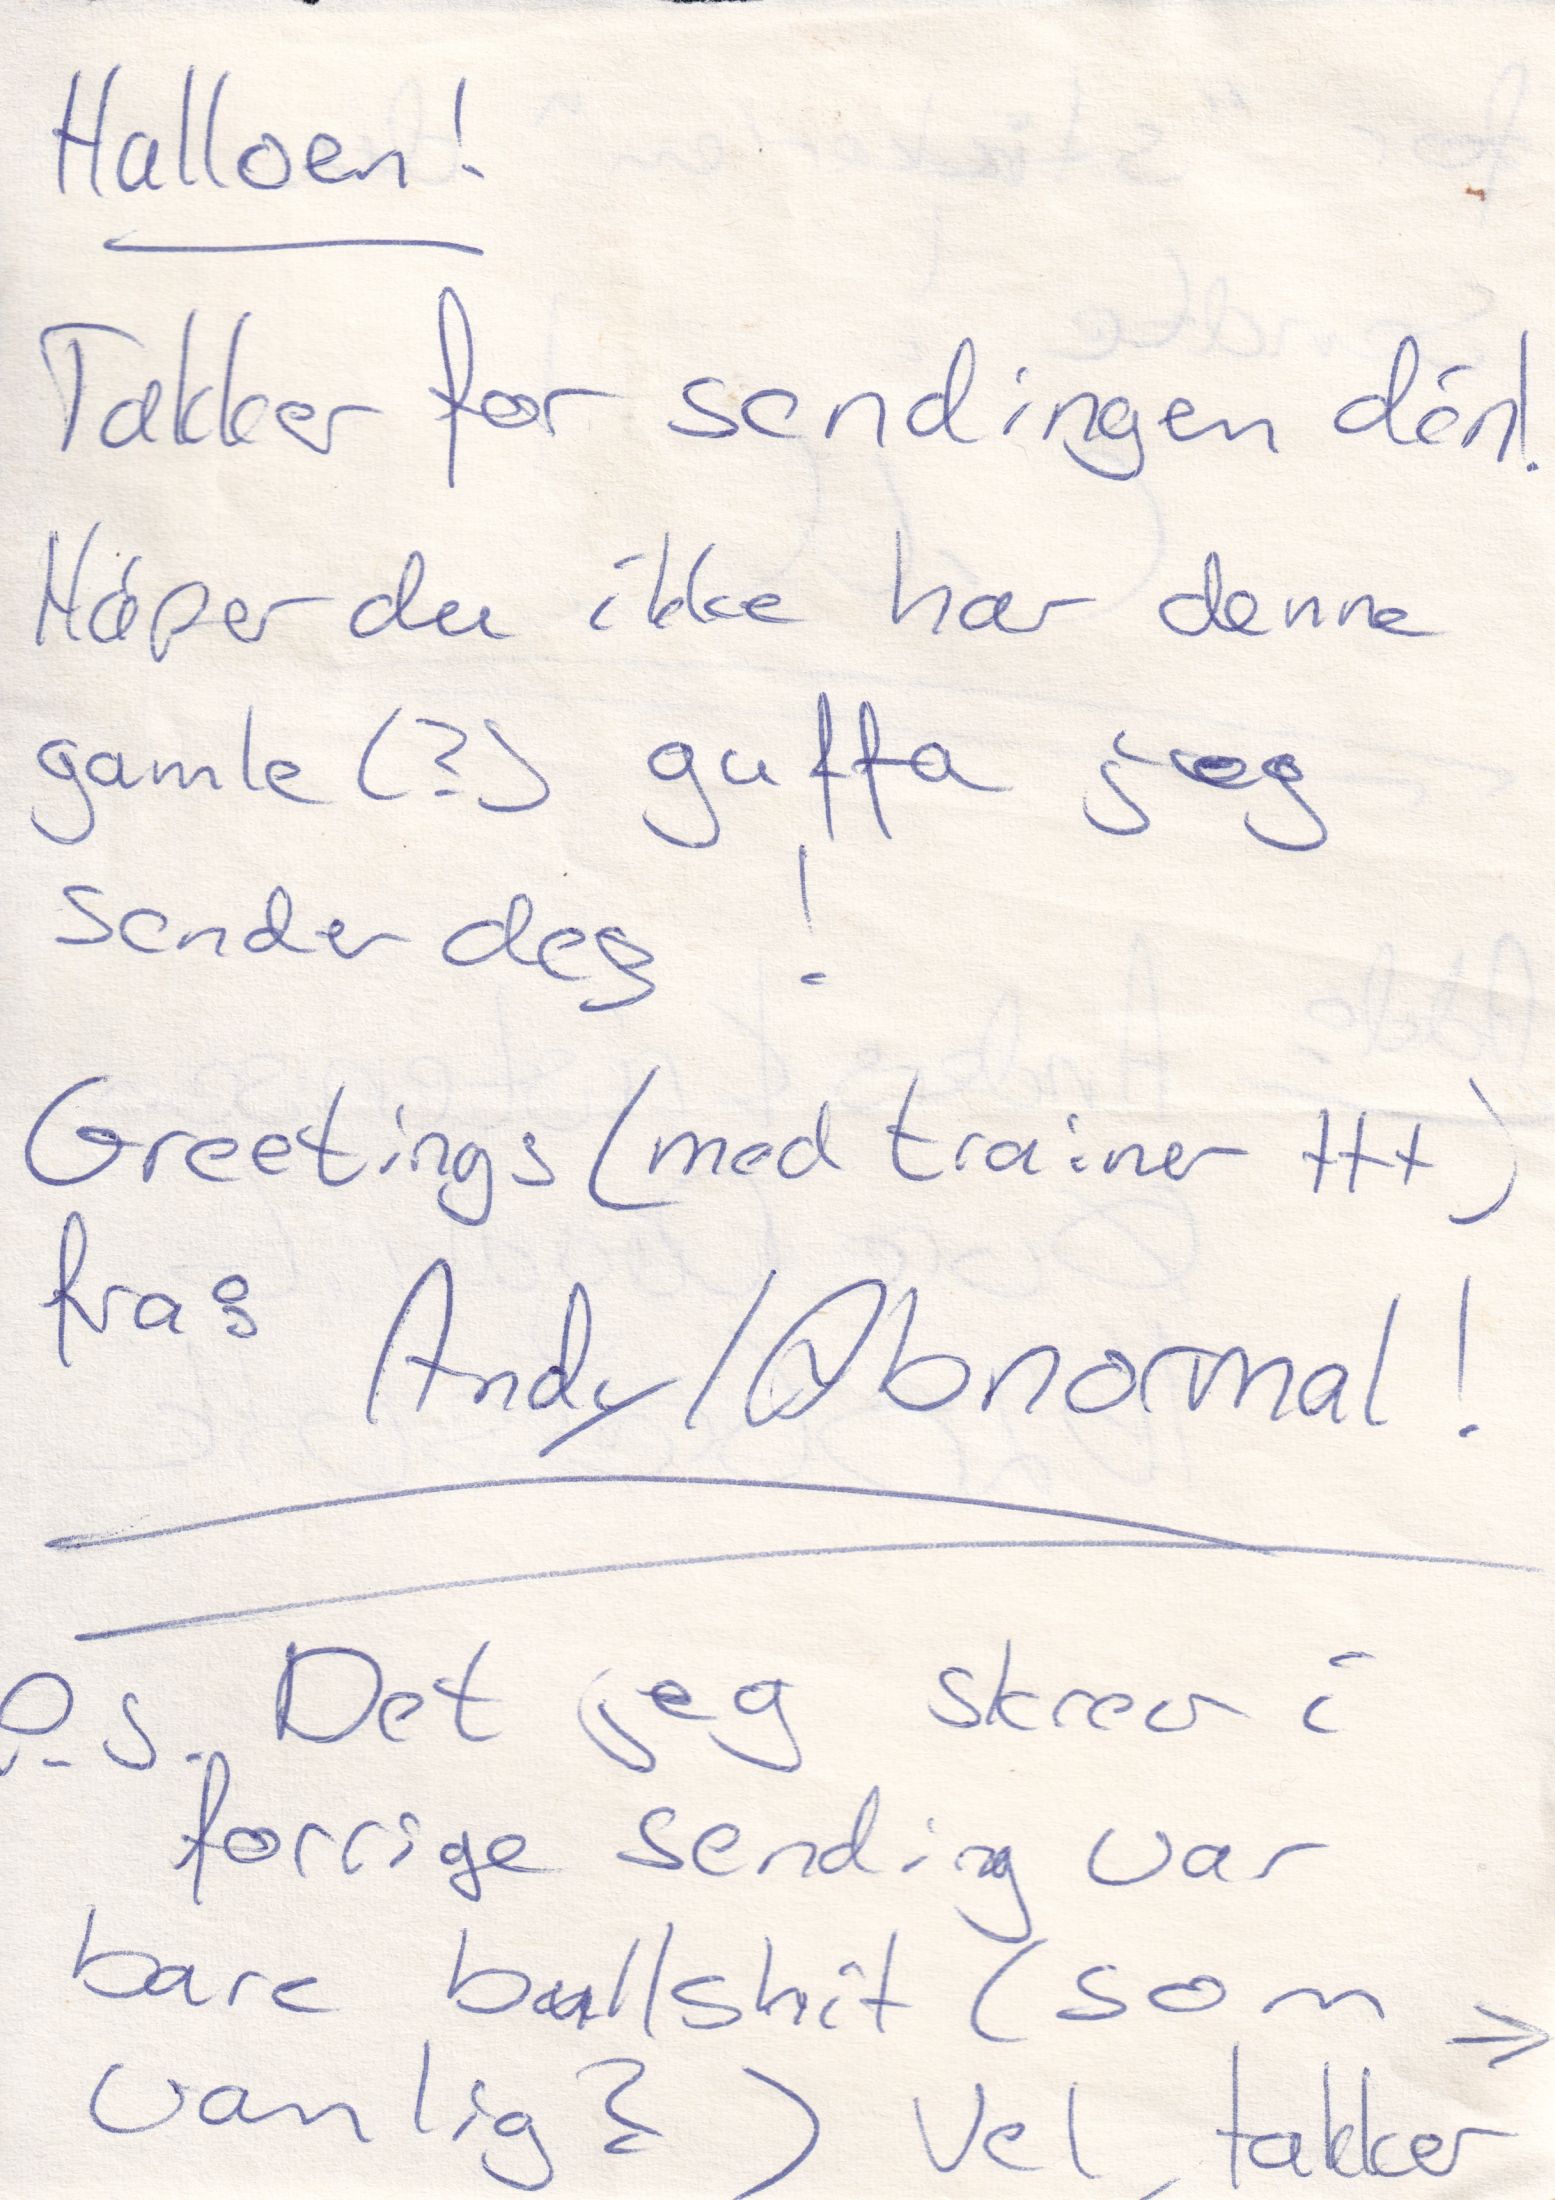 Halloen!
Takker for sendingen din!
Håper du ikke har denne
gamle (?) guffa jeg
sender deg !
Greetings (med trainer +++)
fra: Andy / Abnormal !
P.S. Det jeg skrev i
forrige sending var
bare bullshit (som →
vanlig?) Vel, takker